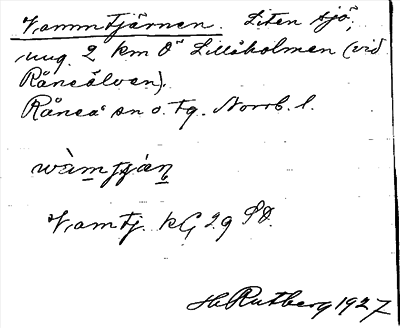 Vammtjärnen. Liten sjö,
ung. 2 km Ö Lillåholmen (vid
Råneälven).
Råneå sn o. tg. Norrb. l.
wàmtjä̀n
Vamtj. kG 29 SO.
H. Rutberg 1927